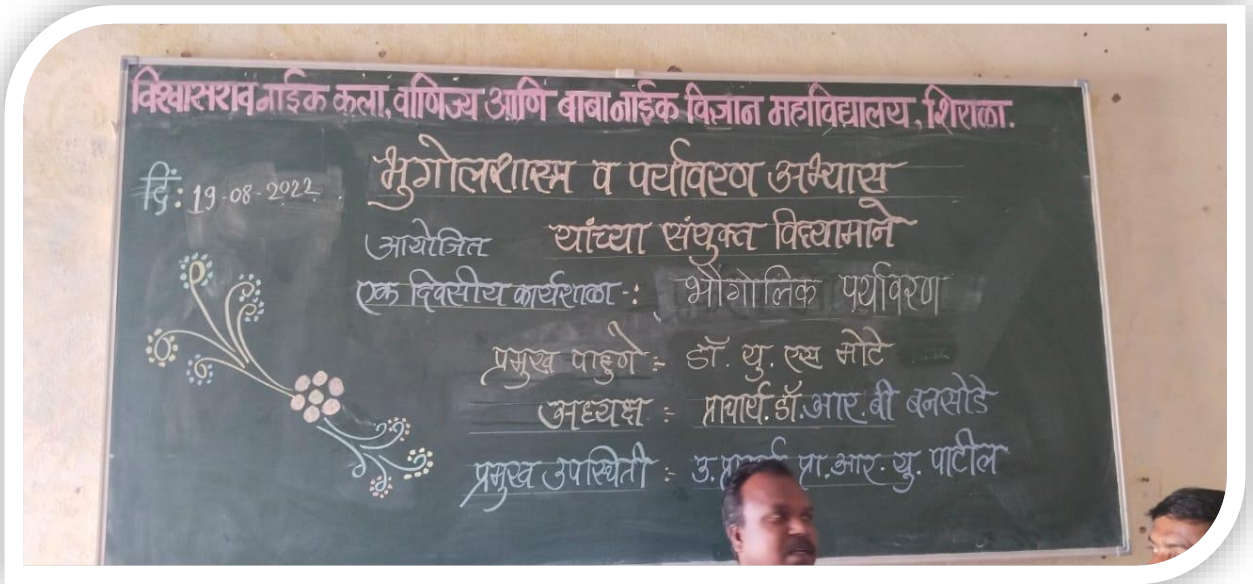 विश्वासराव नाईक कला, वाणिज्य आणि बाबा नाईक विज्ञान महाविद्यालय, शिराळा.
दि: 19-08-2022
भुगोलशास्त्र व पर्यावरण अभ्यास
आयोजित यांच्या संयुक्त विद्यामाने
एक दिवसीय कार्यशाळा -: भौगोलिक पर्यावरण
प्रमुख पाहुणे :- डॉ. यु. एस मोटे
अध्यक्ष :- प्राचार्य. डॉ. आर. बी बनसोडे
प्रमुख उपस्थिती :- उ. प्रा. आर. यु. पाटील